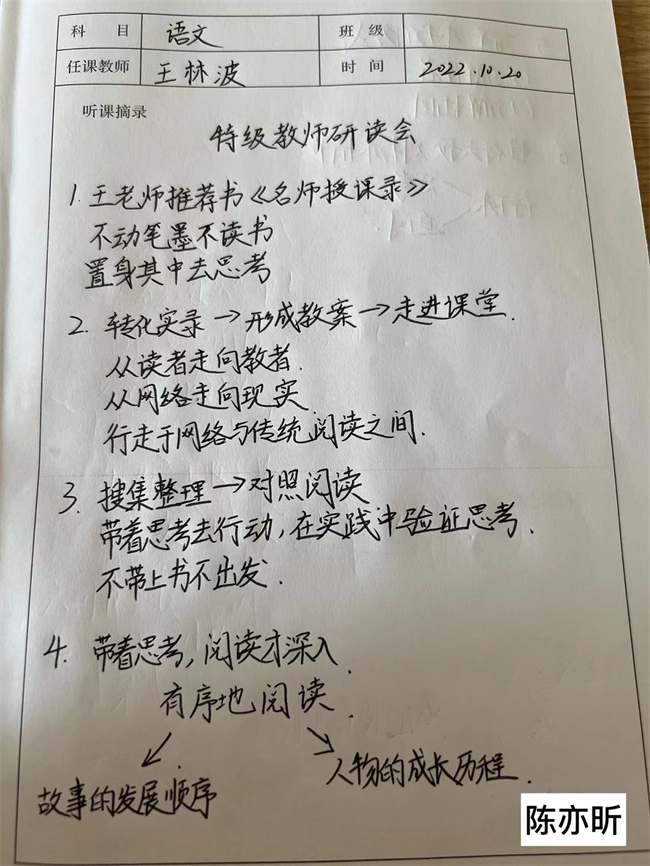 科 目 语文 班 级
任课教师 王林波 时 间 2022.10.20
听课摘录
特级教师研读会
1. 王老师推荐书《名师授课录》
不动笔墨不读书
置身其中去思考
2. 转化实录→形成教案→走进课堂.
从读者走向教者.
从网络走向现实.
行走于网络与传统阅读之间.
3. 搜集整理→对照阅读
带着思考去行动,在实践中验证思考.
不带上书不出发.
4. 带着思考,阅读才深入.
有序地阅读.
↙ ↘
故事的发展顺序 人物的成长历程.
陈亦昕